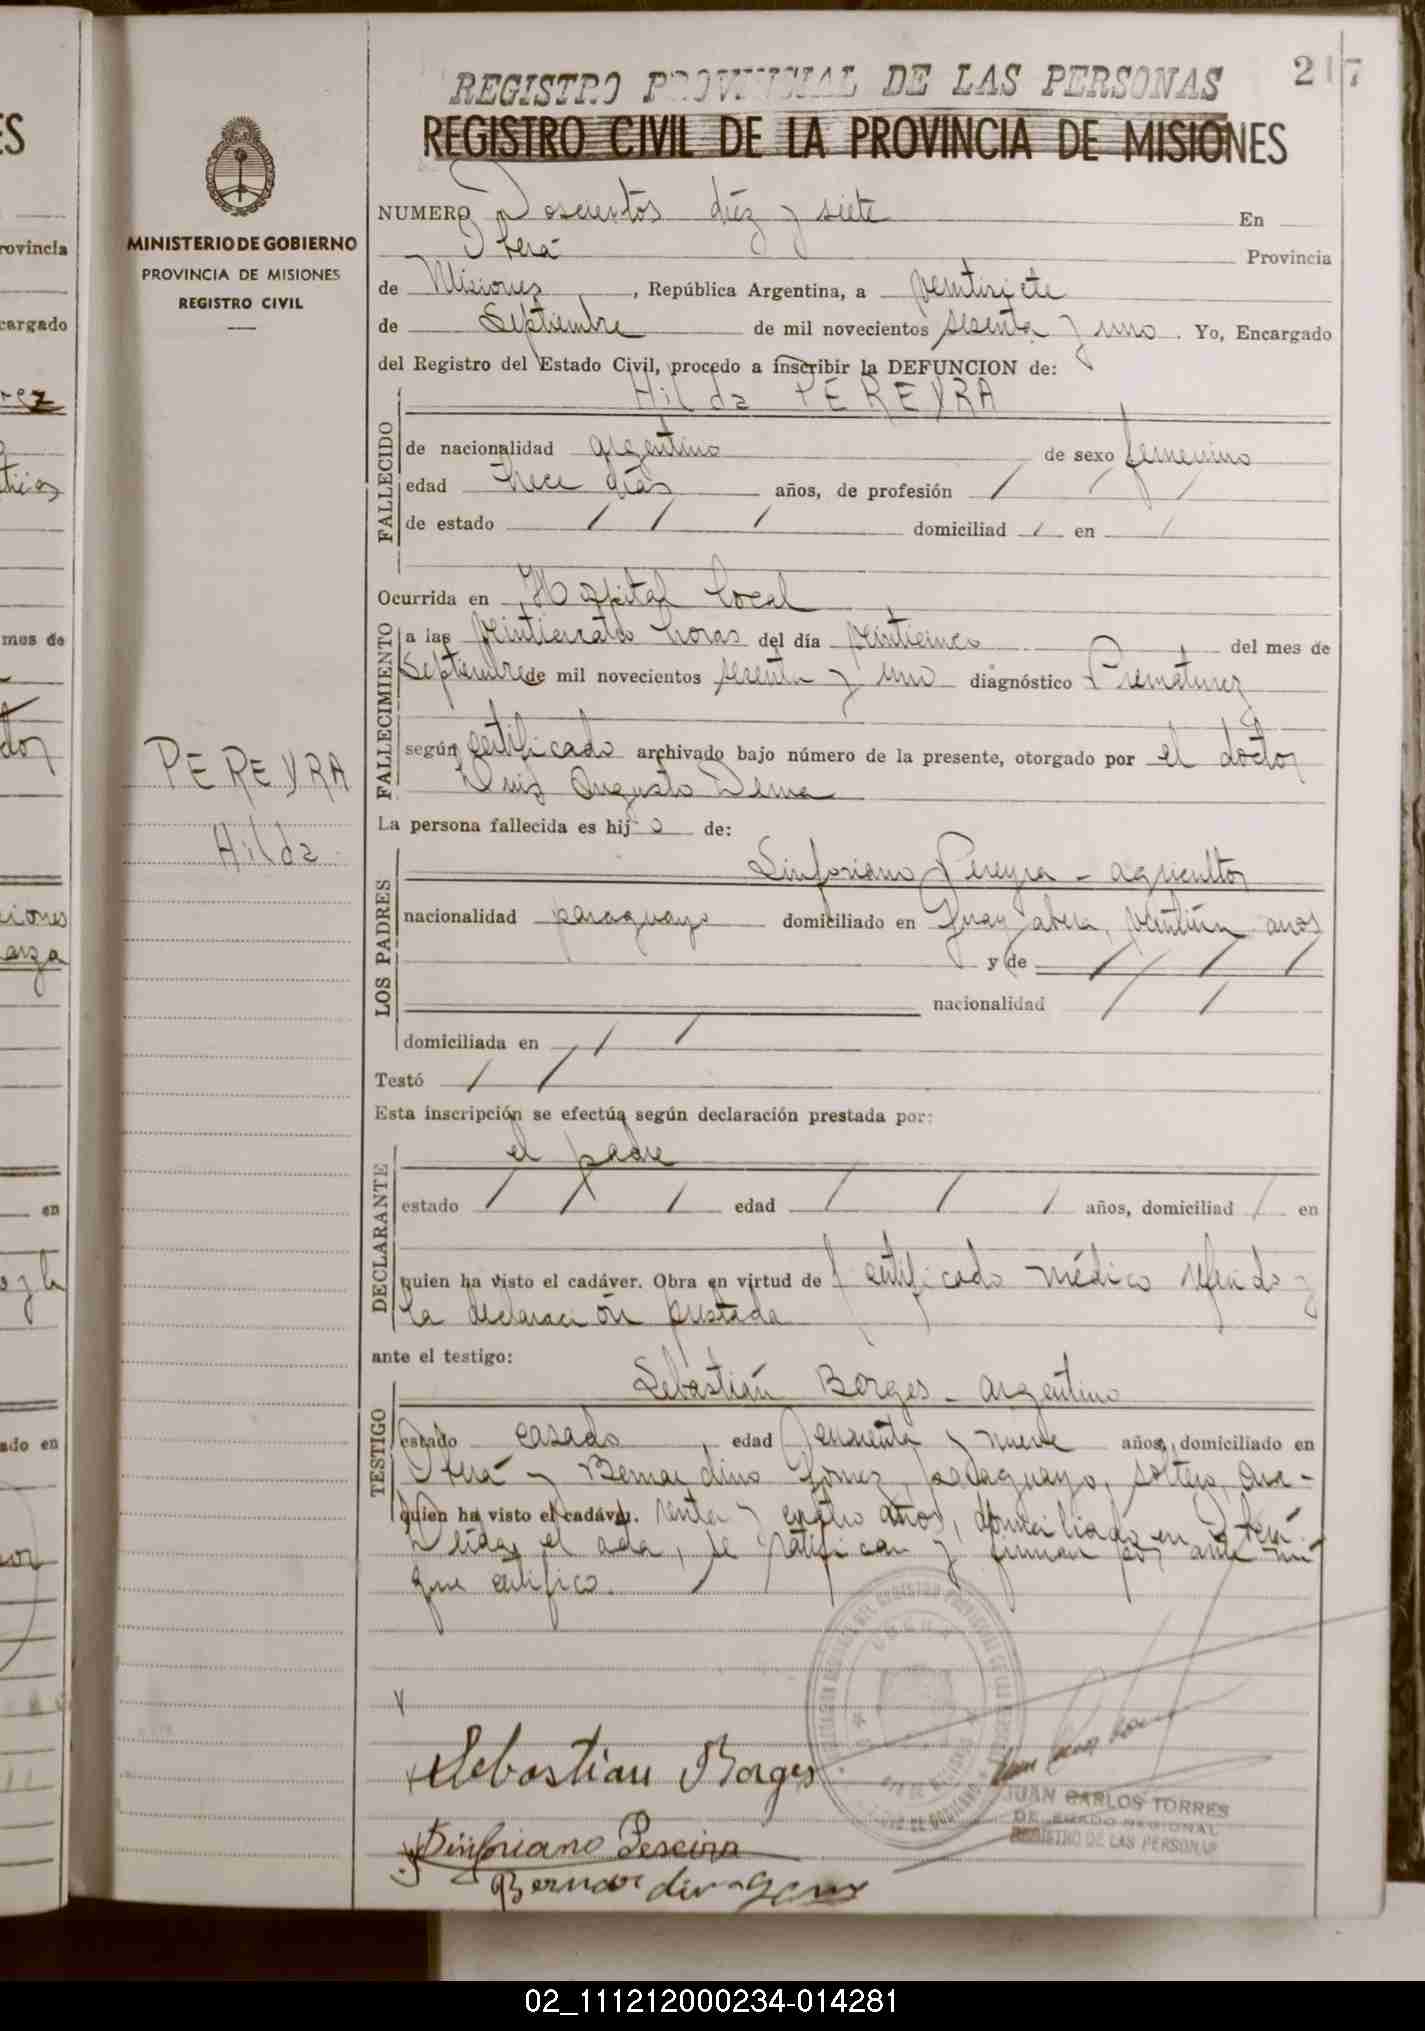 217
REGISTRO PROVINCIAL DE LAS PERSONAS
REGISTRO CIVIL DE LA PROVINCIA DE MISIONES
MINISTERIO DE GOBIERNO
PROVINCIA DE MISIONES
REGISTRO CIVIL
PEREYRA
Hilda
NUMERO Doscientos diez y siete En
Oberá Provincia
de Misiones, República Argentina, a veintisiete
de Septiembre de mil novecientos sesenta y uno. Yo, Encargado
del Registro del Estado Civil, procedo a inscribir la DEFUNCION de:
Hilda PEREYRA
FALLECIDO
de nacionalidad argentino de sexo femenino
edad trece días años, de profesión /
de estado / / / domiciliad / en /
Ocurrida en Hospital local
FALLECIMIENTO
a las veinticuatro horas del día veinticinco del mes de
Septiembre de mil novecientos sesenta y uno diagnóstico Prematurez
según certificado archivado bajo número de la presente, otorgado por el doctor
Luis Augusto Derna
La persona fallecida es hijo de:
LOS PADRES
Sinforiano Pereyra - agricultor
nacionalidad paraguayo domiciliado en Guaraybera, veintiún anos
y de / / /
nacionalidad / /
domiciliada en / /
Testó / /
Esta inscripción se efectúa según declaración prestada por:
DECLARANTE
el padre
estado / / / edad / / / años, domiciliad / en
quien ha visto el cadáver. Obra en virtud de certificado médico referido y
la declaración prestada
ante el testigo:
TESTIGO
Sebastián Borges - argentino
estado casado, edad cuarenta y nueve años, domiciliado en
Oberá y Bernardino Gómez, paraguayo, soltero, cua-
quien ha visto el cadáver. renta y cuatro años, domiciliado en Oberá.
Leída el acta, se ratifican y firman por ante mí
que certifico.
Sebastian Borges
Sinforiano Pereira
JUAN CARLOS TORRES
DELEGADO REGIONAL
REGISTRO DE LAS PERSONAS
02_111212000234-014281